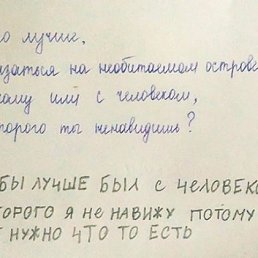 о лучше,
азаться на необитаемом острове
ому или с человеком,
торого ты ненавидишь?
БЫ ЛУЧШЕ БЫЛ С ЧЕЛОВЕКО
ТОРОГО Я НЕ НАВИЖУ ПОТОМУ
Т НУЖНО ЧТО ТО ЕСТЬ